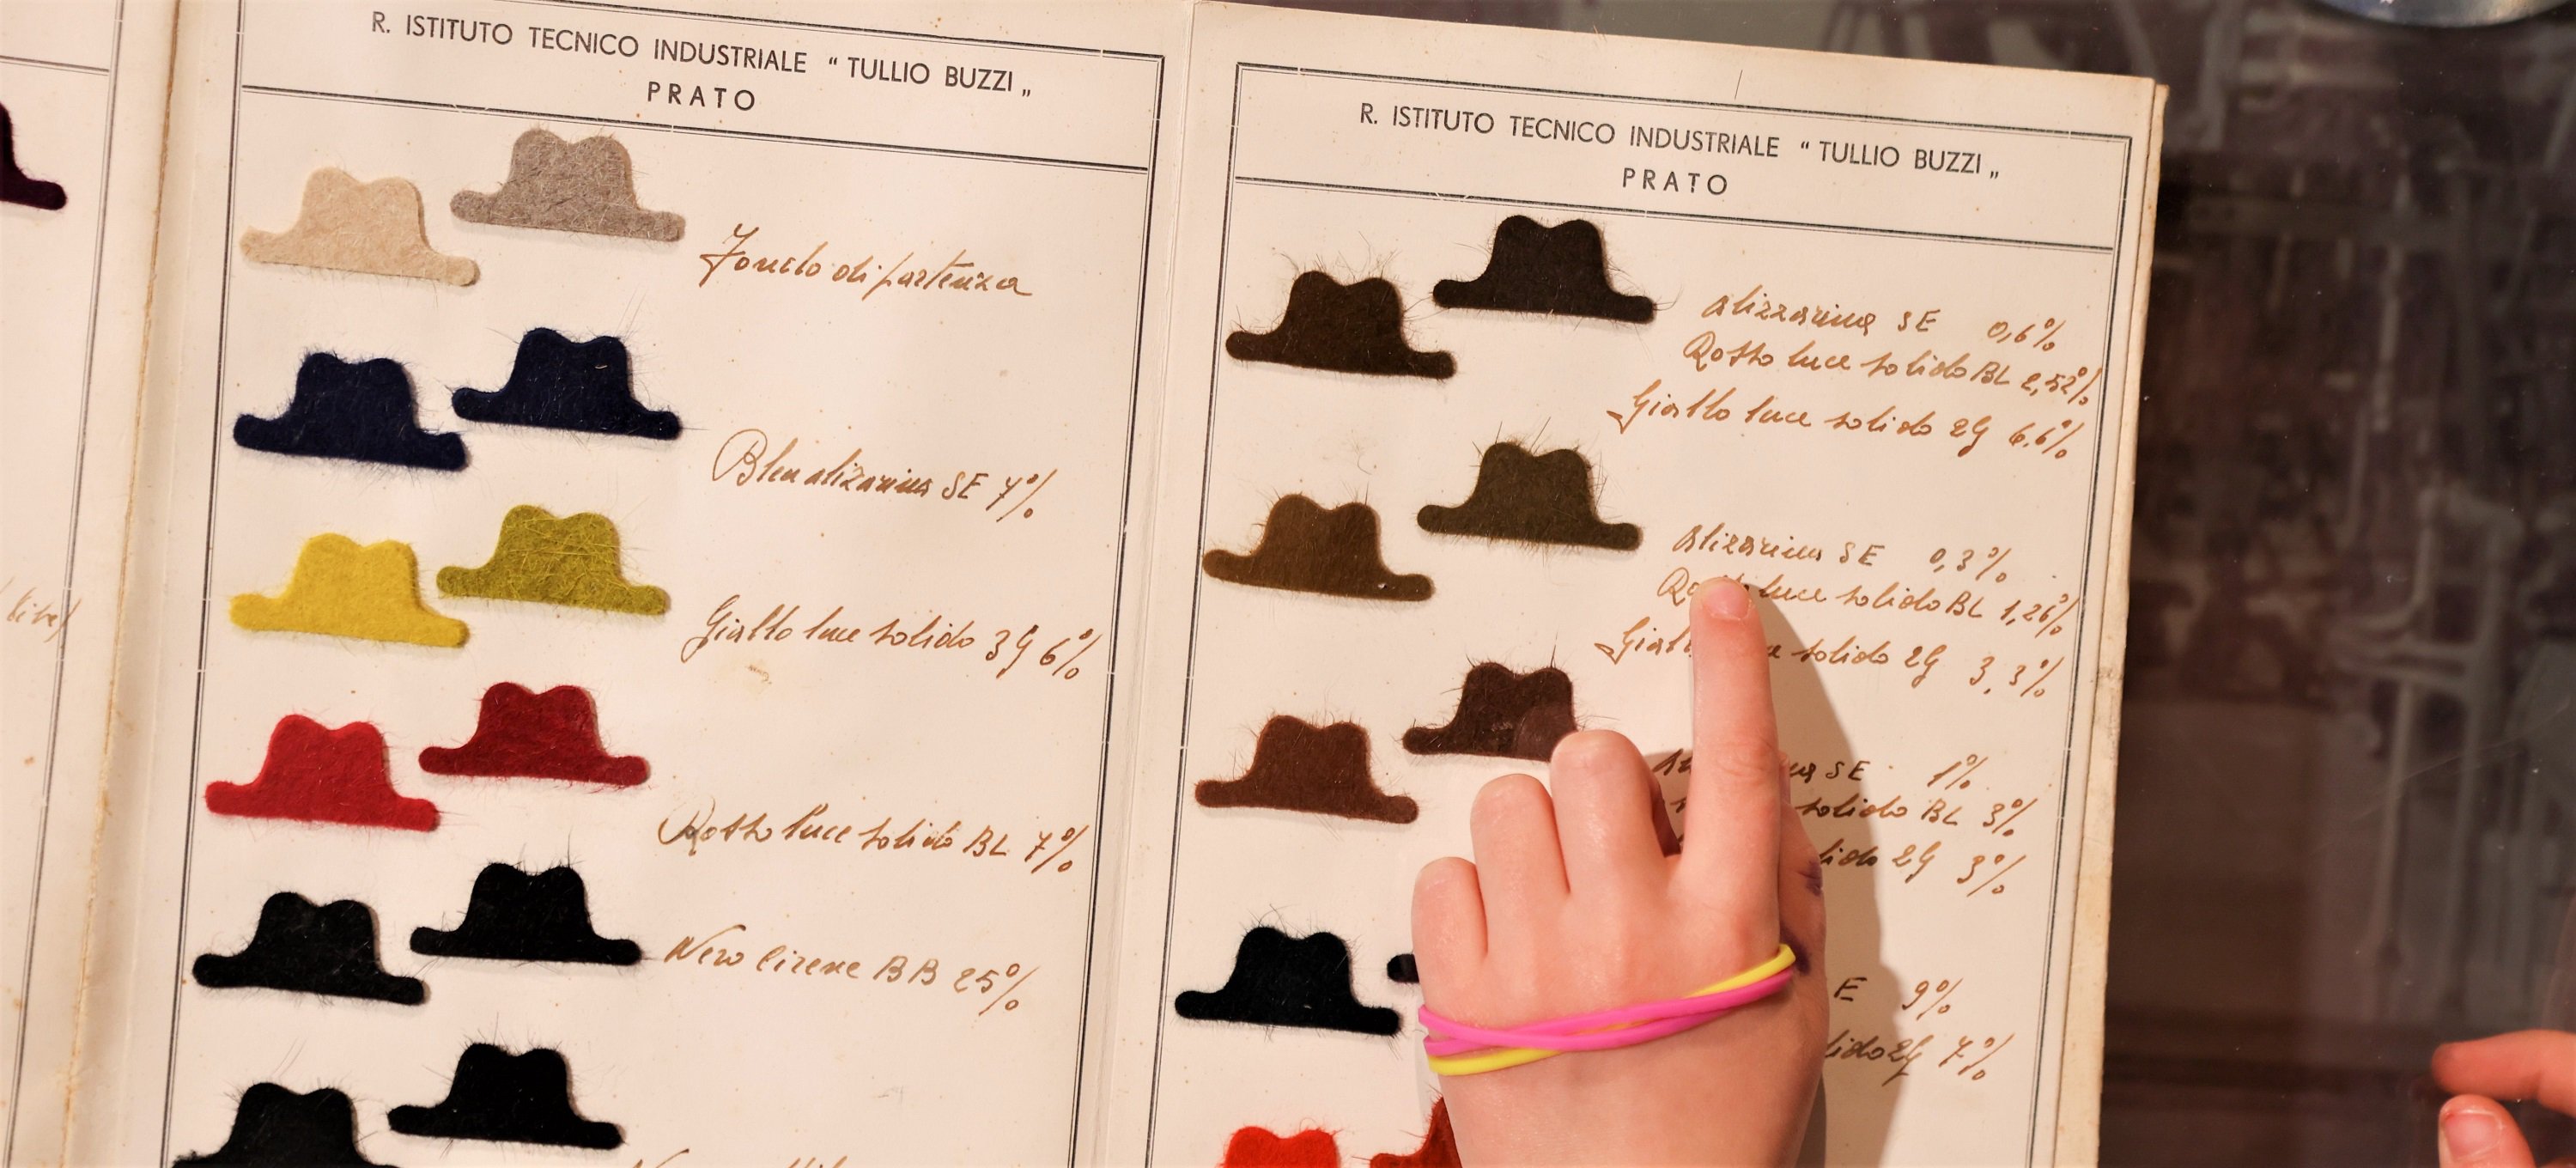 R. ISTITUTO TECNICO INDUSTRIALE “ TULLIO BUZZI „
PRATO
Fondo di partenza
Bleu alizarina SE 7%
Giallo luce solido 3G 6%
Rosso luce solido BL 7%
Nero BB 25%
R. ISTITUTO TECNICO INDUSTRIALE “ TULLIO BUZZI „
PRATO
Alizzarina SE 0,6%
Rosso luce solido BL 2,52%
Giallo luce solido 2G 6,6%
Alizarina SE 0,3%
luce solido BL 1,26%
solido 2G 3,3%
SE 1%
solido BL 3%
2G 3%
E 9%
2G 7%